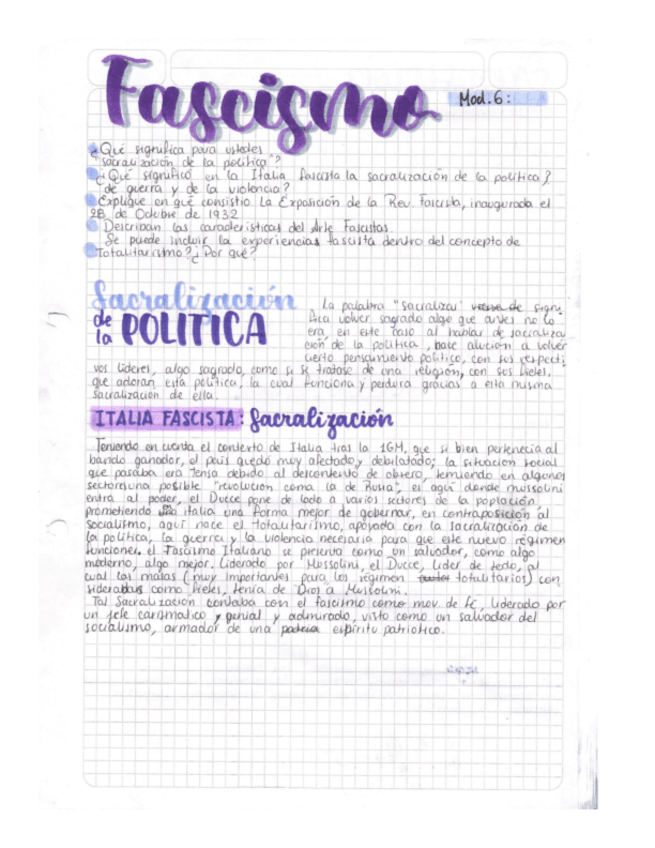 Fascismo
Mod. 6:
¿Qué significa para ustedes
"sacralización de la política"?
¿Qué significó en la Italia fascista la sacralización de la política?,
de guerra y de la violencia?
Explique en qué consistio La Exposición de la Rev. Fascista, inaugurada el
28 de Octubre de 1932
Describan las caracteristicas del Arte Fascistas.
Se puede incluir la experiencias fascista dentro del concepto de
Totalitarismo? ¿Por qué?
Sacralización
de la POLITICA
La palabra "sacralizar" de signi
fica volver sagrado algo que antes no lo
era, en este caso al hablar de sacraliza
ción de la política, hace alución a volver
cierto pensamiento político, con sus respecti
vos líderes, algo sagrado, como si se tratase de una religión, con sus fieles,
que adoran esta política, la cual funciona y perdura gracias a esta misma
sacralización de ella.
ITALIA FASCISTA: Sacralización
Teniendo en cuenta el contexto de Italia tras la 1GM, que si bien pertenecia al
bando ganador, el país quedó muy afectado y debilatado; la situacion social
que pasaba era tensa debido al descontento de obrero, temiendo en algunos
sectores una posible "revolucion como la de Rusia", es aquí donde mussolini
entra al poder, el Ducce pone de lado a varios sectores de la poplación
prometiendo italia una forma mejor de gobernar, en contraposición al
socialismo, aquí nace el totalitarismo, apoyada con la sacralización de
la política, la guerra y la violencia necesaria para que este nuevo régimen
funciones. el Fascismo Italiano se presenta como un salvador, como algo
moderno, algo mejor. Liderado por Mussolini, el Ducce, líder de todo, al
cual las masas (muy importantes para los régimen totalitarios) con
sideradas como fieles, tenía de Dios a Mussolini.
Tal Sacralización contaba con el fascismo como mov. de fé, liderado por
un jefe carismatico y genial y admirado, visto como un salvador del
socialismo, armador de una espíritu patriotico.